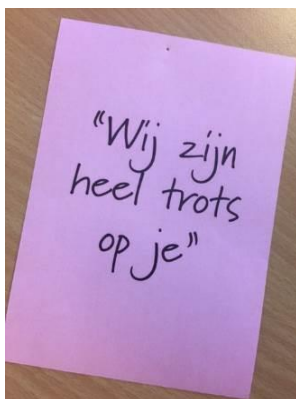 “Wij zijn
heel trots
op je”